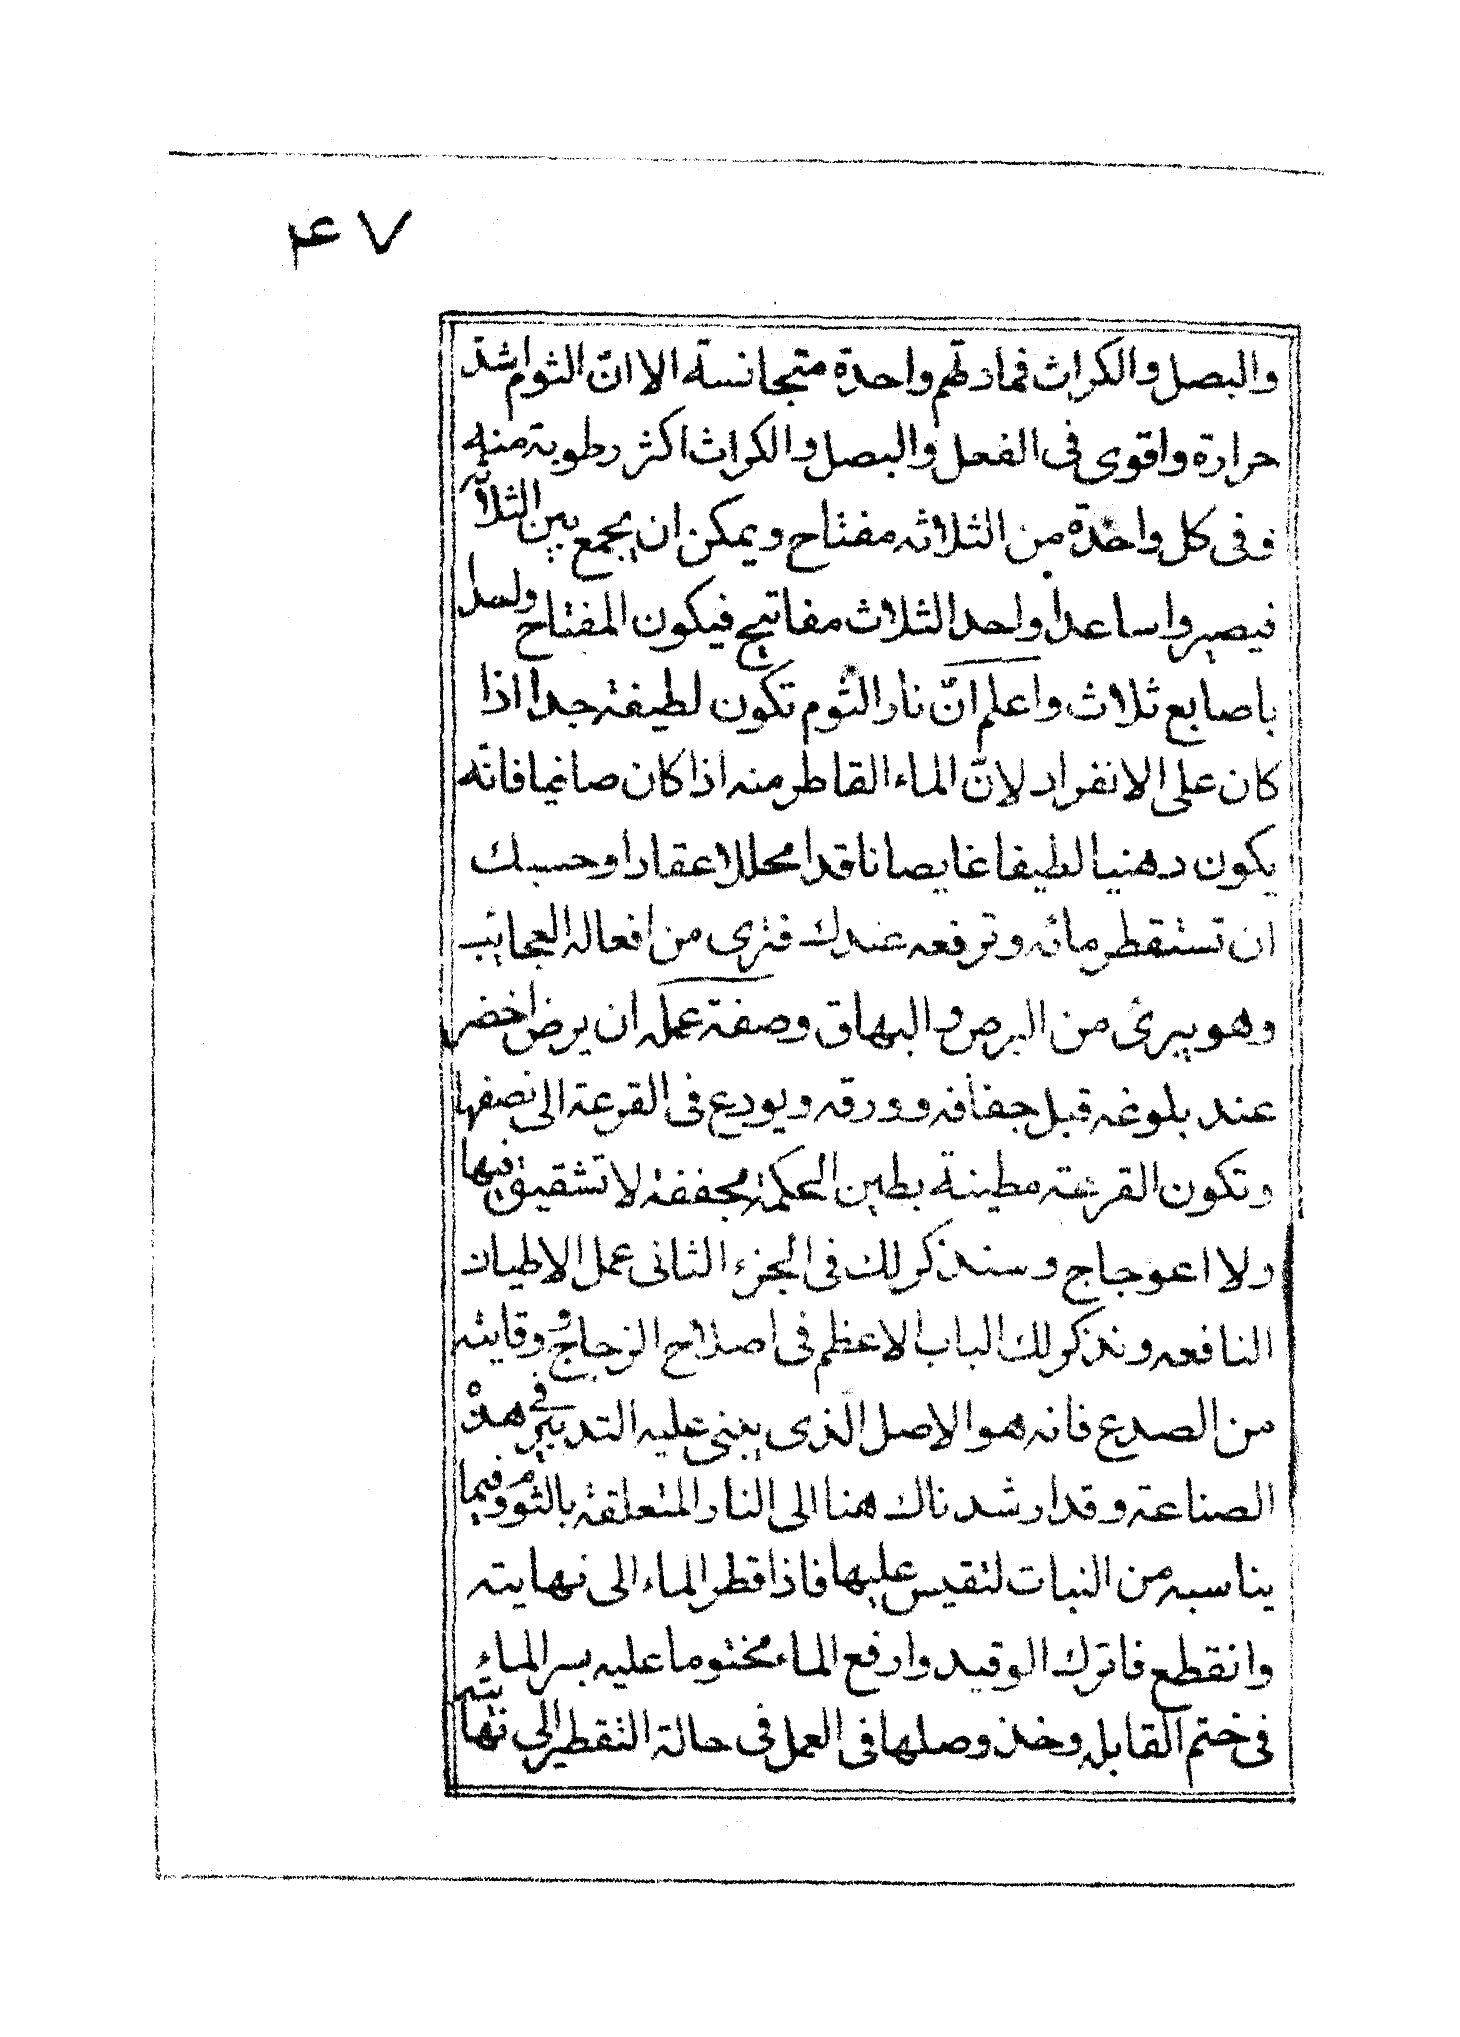 ۴۷
والبصل والكراث فمادتهم واحدة متجانسة الا انّ الثوم اشدّ
حرارة واقوى فى الفعل والبصل والكراث اكثر رطوبة منه
ففى كل واحدة من الثلاثه مفتاح ويمكن ان يجمع بين الثلاثه
فيصيروا ساعدا واحدا لثلاث مفاتيح فيكون المفتاح ولسل
باصابع ثلاث واعلم انّ نار الثوم تكون لطيفة جدا اذا
كان على الانفراد لانّ الماء القاطر منه اذا كان صانيما فانّه
يكون دهنيا لطيفا غايصا ناقدا محللا عقادا وحسبك
ان تستقطر مائه وترفعه عندك فترى من افعاله العجايب
وهو يبرئ من البرص والبهاق وصفة عمله ان يرض اخضر
عند بلوغه قبل جفافه وورقه ويودع فى القرعة الى نصفها
وتكون القرعته مطينة بطين الحكمة مجففة لا تشقيق فيها
ولا اعوجاج وسنذكر لك فى الجزء الثانى عمل الاطيان
النافعه ونذكر لك الباب الاعظم فى اصلاح الزجاج ووقايته
من الصدع فانه هو الاصل الّذى يبنى عليه التدبير فى هذه
الصناعة وقد ارشدناك هنا الى النار المتعلقة بالثوم وفيما
يناسبه من النبات لتقيس عليها فاذا قطر الماء الى نهايته
وانقطع فاترك الوقيد وارفع الماء مختوما عليه بسر الماء
فى ختم القابله وخذ وصلها فى العمل فى حالة التقطير الى نهايته